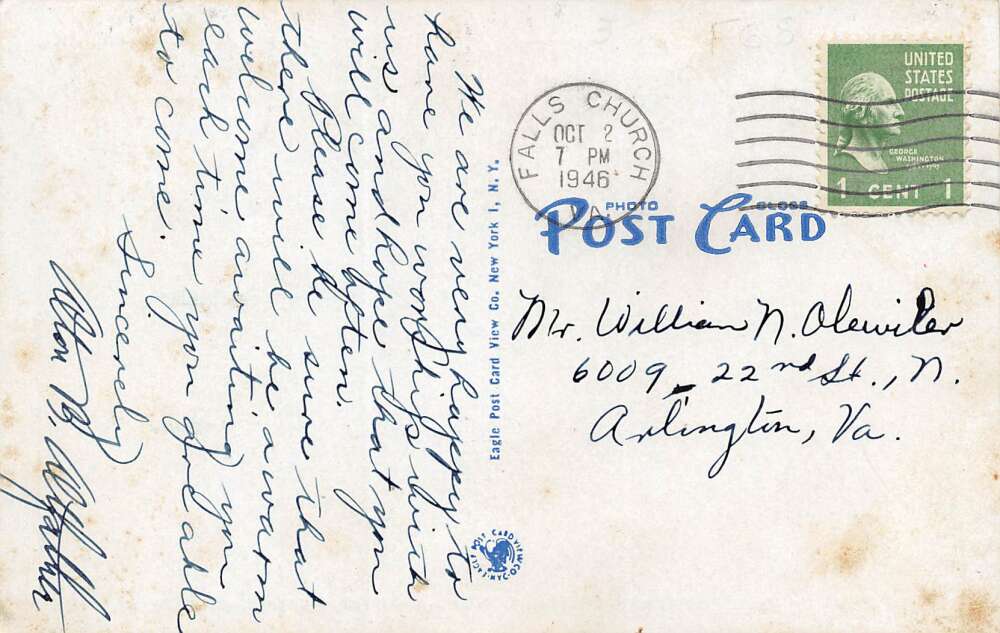 We are very happy to
have you worship with
us and hope that you
will come often.
Please be sure that
there will be a warm
welcome awaiting you
each time you are able
to come.
Sincerely
Eagle Post Card View Co. New York 1, N. Y.
EAGLE POST CARD VIEW CO. N.Y.C.
FALLS CHURCH
OCT 2
7 PM
1946
VA.
UNITED
STATES
POSTAGE
GEORGE
WASHINGTON
1 CENT 1
PHOTO GLOSS
POST CARD
Mr. William N. Olewiler
6009 - 22nd St., N.
Arlington, Va.